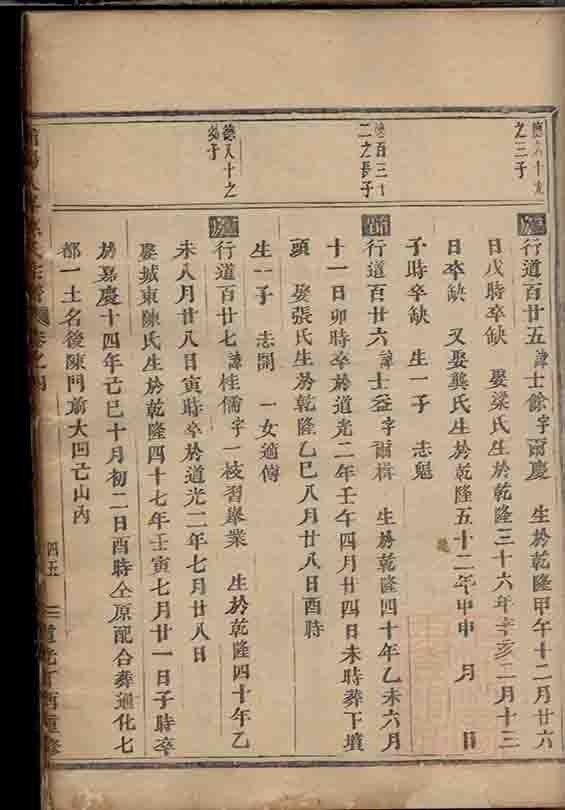 之三子
行道百廿五 諱士餘字爾慶 生於乾隆甲午十二月廿六
日戌時卒缺 娶梁氏生於乾隆三十六年辛亥二月十三
日卒缺 又娶龔氏生於乾隆五十二年甲申 月 日
子時卒缺 生一子 志魁
二之長子
行道百廿六 諱士益字爾楫 生於乾隆四十年乙未六月
十一日卯時卒於道光二年壬午四月廿四日未時葬下墳
頭 娶張氏生於乾隆乙巳八月廿八日酉時
生一子 志開 一女適傅
德八十之
幼子
行道百廿七 諱桂儒字一枝習舉業 生於乾隆四十年乙
未八月廿八日寅時卒於道光二年七月廿八日
娶城東陳氏生於乾隆四十七年壬寅七月廿一日子時卒
於嘉慶十四年己巳十月初二日酉時仝原配合葬通化七
都一土名後陳門前大凹亡山內
四五
道光丁酉重修